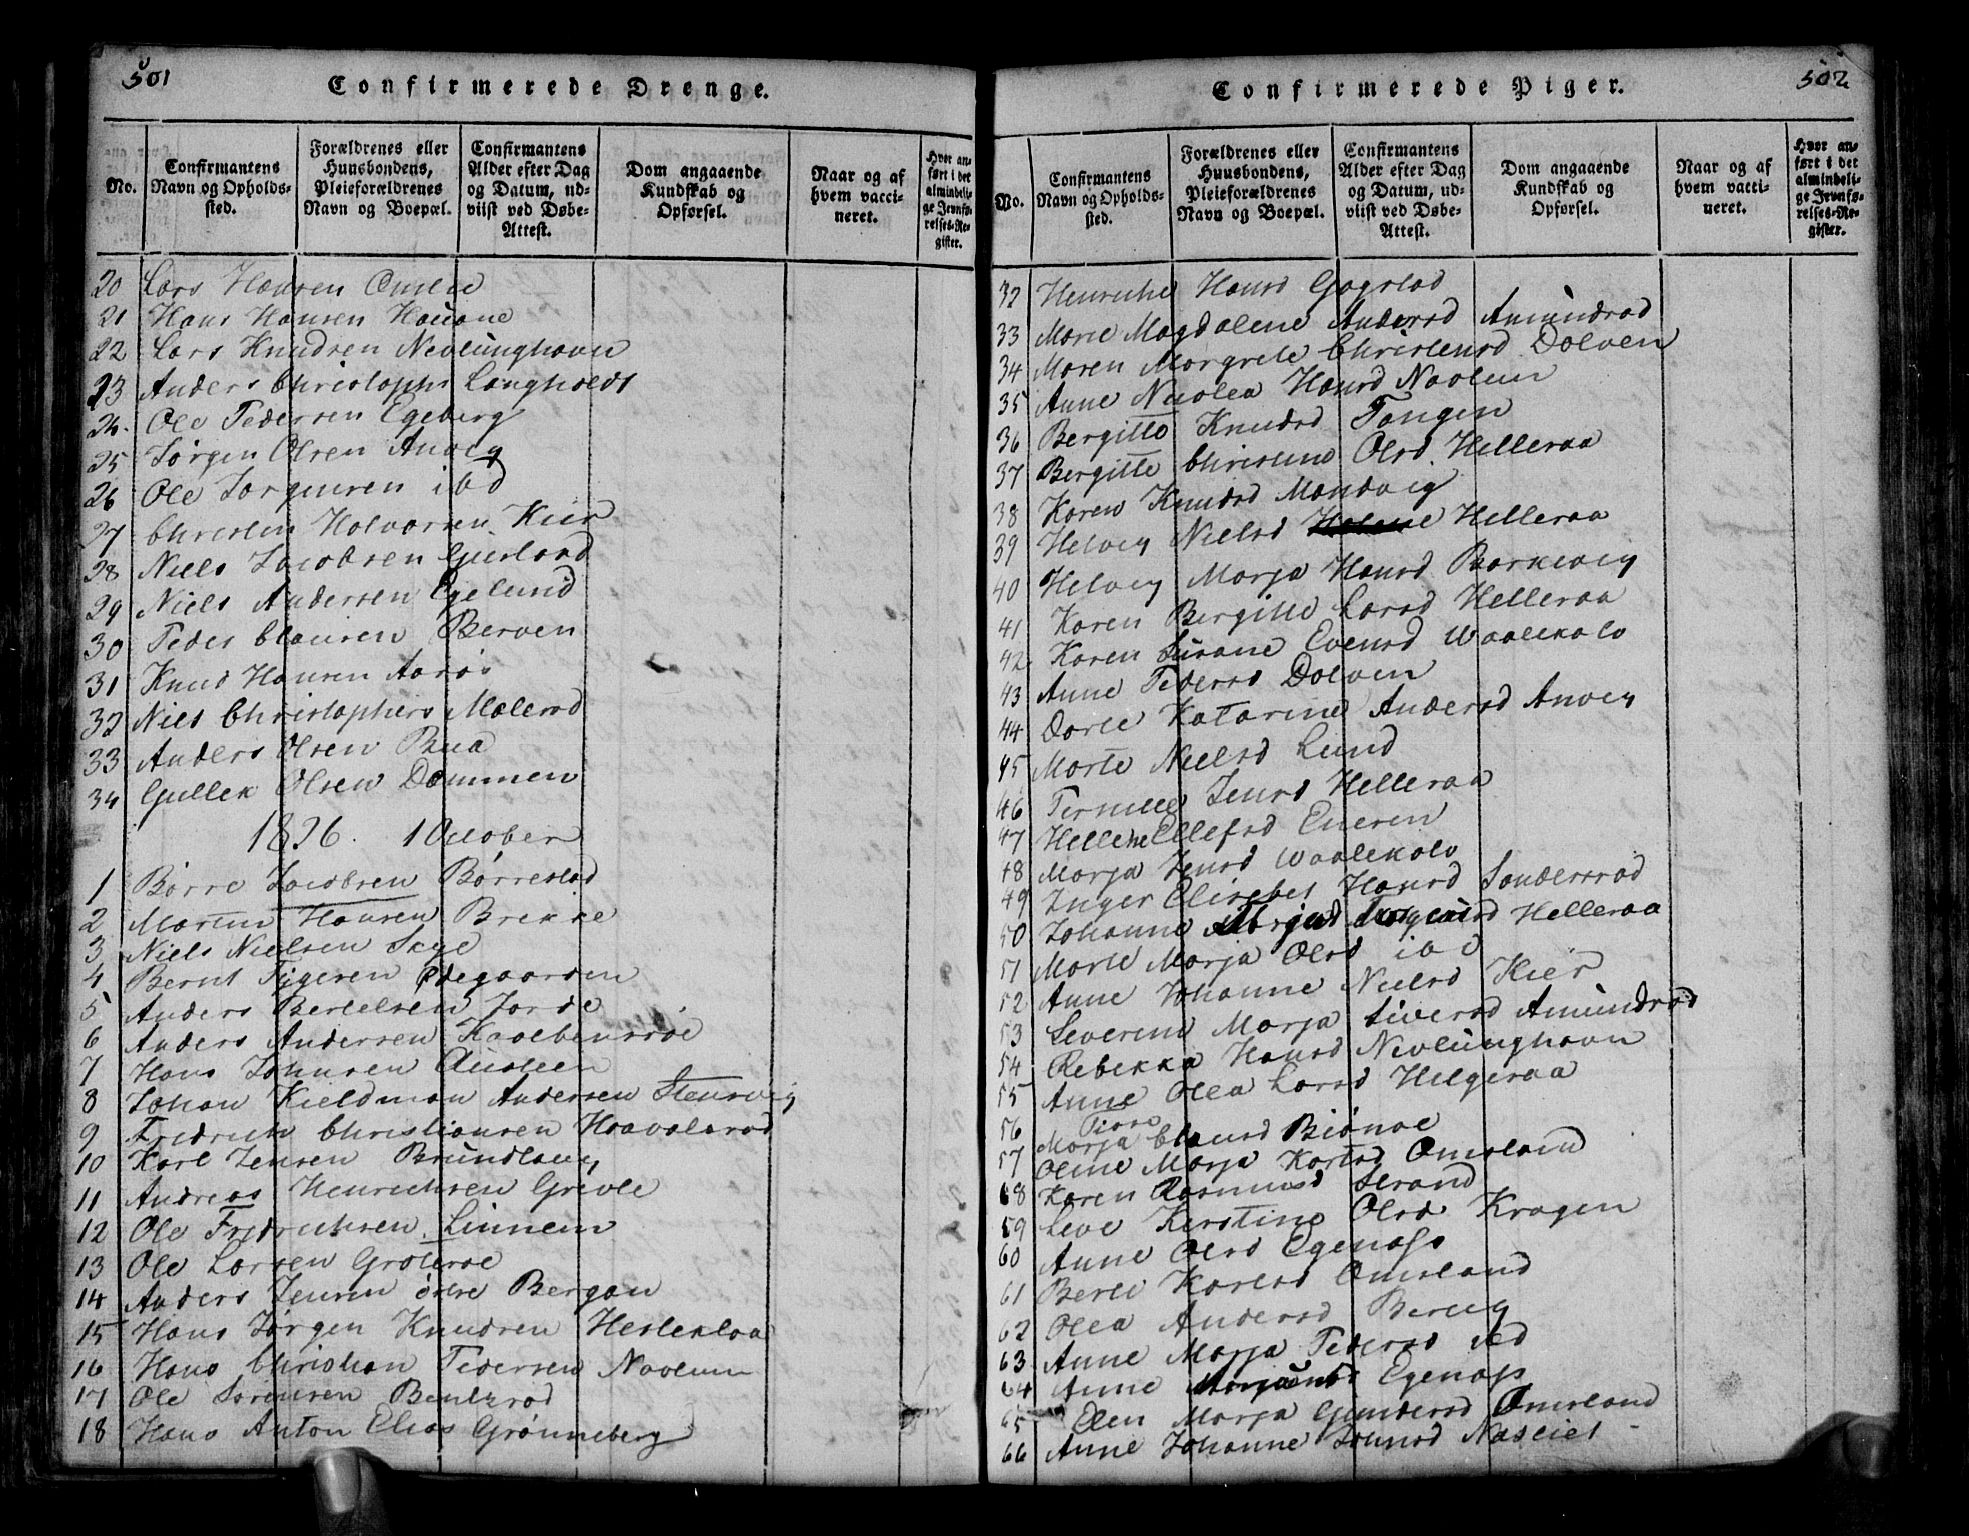 501
Confirmerede Drenge.
No.
Confirmantens Navn og Opholds-sted.
Forældrenes eller Huusbondens, Pleieforældrenes Navn og Boepæl.
Confirmantens Alder efter Dag og Datum, ud-viist ved Døbe-Attest.
Dom angaaende Kundskab og Opførsel.
Naar og af hvem vacci-neret.
Hvor an-ført i det almindeli-ge Jevnfø-relses-Re-gister.
20 Lars Hansen Omlie
21 Hans Hansen Hauane
22 Lars Knudsen Nevlunghavn
23 Anders Christophs Langholdt
24. Ole Pedersen Egeberg
25 Jørgen Olsen Anvig
26 Ole Jørgensen ibd
27 Christen Halvorsen Kier
28 Niels Jacobsen Gierstad
29 Niels Andersen Egelund
30 Peder Clausen Berven
31 Knud Hansen Aarøs
32 Niels Christophers Malerød
33 Anders Olsen Bua
34 Gullek Olsen Dammen
1826. 1 October
1 Børre Jacobsen Børrestad
2 Martin Hansen Brekke
3 Niels Nielsen Skye
4 Bernt Tygesen Ødegaarden
5 Anders Bertelsen Jorde
6 Anders Andersen Kaalbensrøe
7 Hans Johnsen Austeen
8 Johan Kieldman Andersen Stensvig
9 Fredrich Christiansen Haavalsrød
10 Karl Jensen Brundlaug
11 Andreas Henrichsen Grevle
12 Ole Fredrichsen Linnem
13 Ole Larsen Groterøe
14 Anders Jensen østre Bergan
15 Hans Jørgen Knudsen Hesleklaa
16 Hans Christian Pedersen Navlum
17 Ole Sørensen Bentzrød
18 Hans Anton Elias Grønneberg
502
Confirmerede Piger.
No.
Confirmantens Navn og Opholds-sted.
Forældrenes eller Huusbondens, Pleieforældrenes Navn og Boepæl.
Confirmantens Alder efter Dag og Datum, ud-viist ved Døbe-Attest.
Dom angaaende Kundskab og Opførsel.
Naar og af hvem vacci-neret.
Hvor an-ført i det almindeli-ge Jevnfø-relses-Re-gister.
32 Henriche Hansd Gogstad
33 Marie Magdalene Andersd Amundrød
34 Maren Margrete Christensd Dolven
35 Anne Nicolea Hansd Navlum
36 Bergitte Knudsd Tangen
37 Bergitte Christine Olsd Helleraa
38 Karen Knudsd Mandvig
39 Helvig Nielsd Helleraa
40 Helvig Marja Hansd Barkevig
41 Karen Bergitte Larsd Helleraa
42 Karen Susane Evensd Waalekalv
43 Anne Pedersd Dolven
44 Dorte Katarine Andersd Anvig
45 Marte Nielsd Lund
46 Pernille Jensd Helleraa
47 Hellene Ellefsd Eneren
48 Marja Jensd Waalekalv
49 Inger Elisebet Hansd Sondersrød
50 Johanne Jørgensd Helleraa
51 Marte Marja Olsd ibd
52 Anne Johanne Nielsd Kier
53 Severine Marja Siversd Amundrød
54 Rebekka Hansd Nevlunghavn
55 Anne Olea Larsd Helgeraa
56 Marja Clausd Biønøe
57 Oline Marja Karlsd Omsland
58 Karen Rasmusd Strand
59 Live Kirstine Olsd Kragen
60 Anne Olsd Egenæss
61 Berte Karlsd Omsland
62 Olea Andersd Berrig
63 Anne Marja Pedersd
64 Anne Egenæss
65 Elen Marja Gundersd Omsland
66 Anne Johanne Johnsd Nasciet